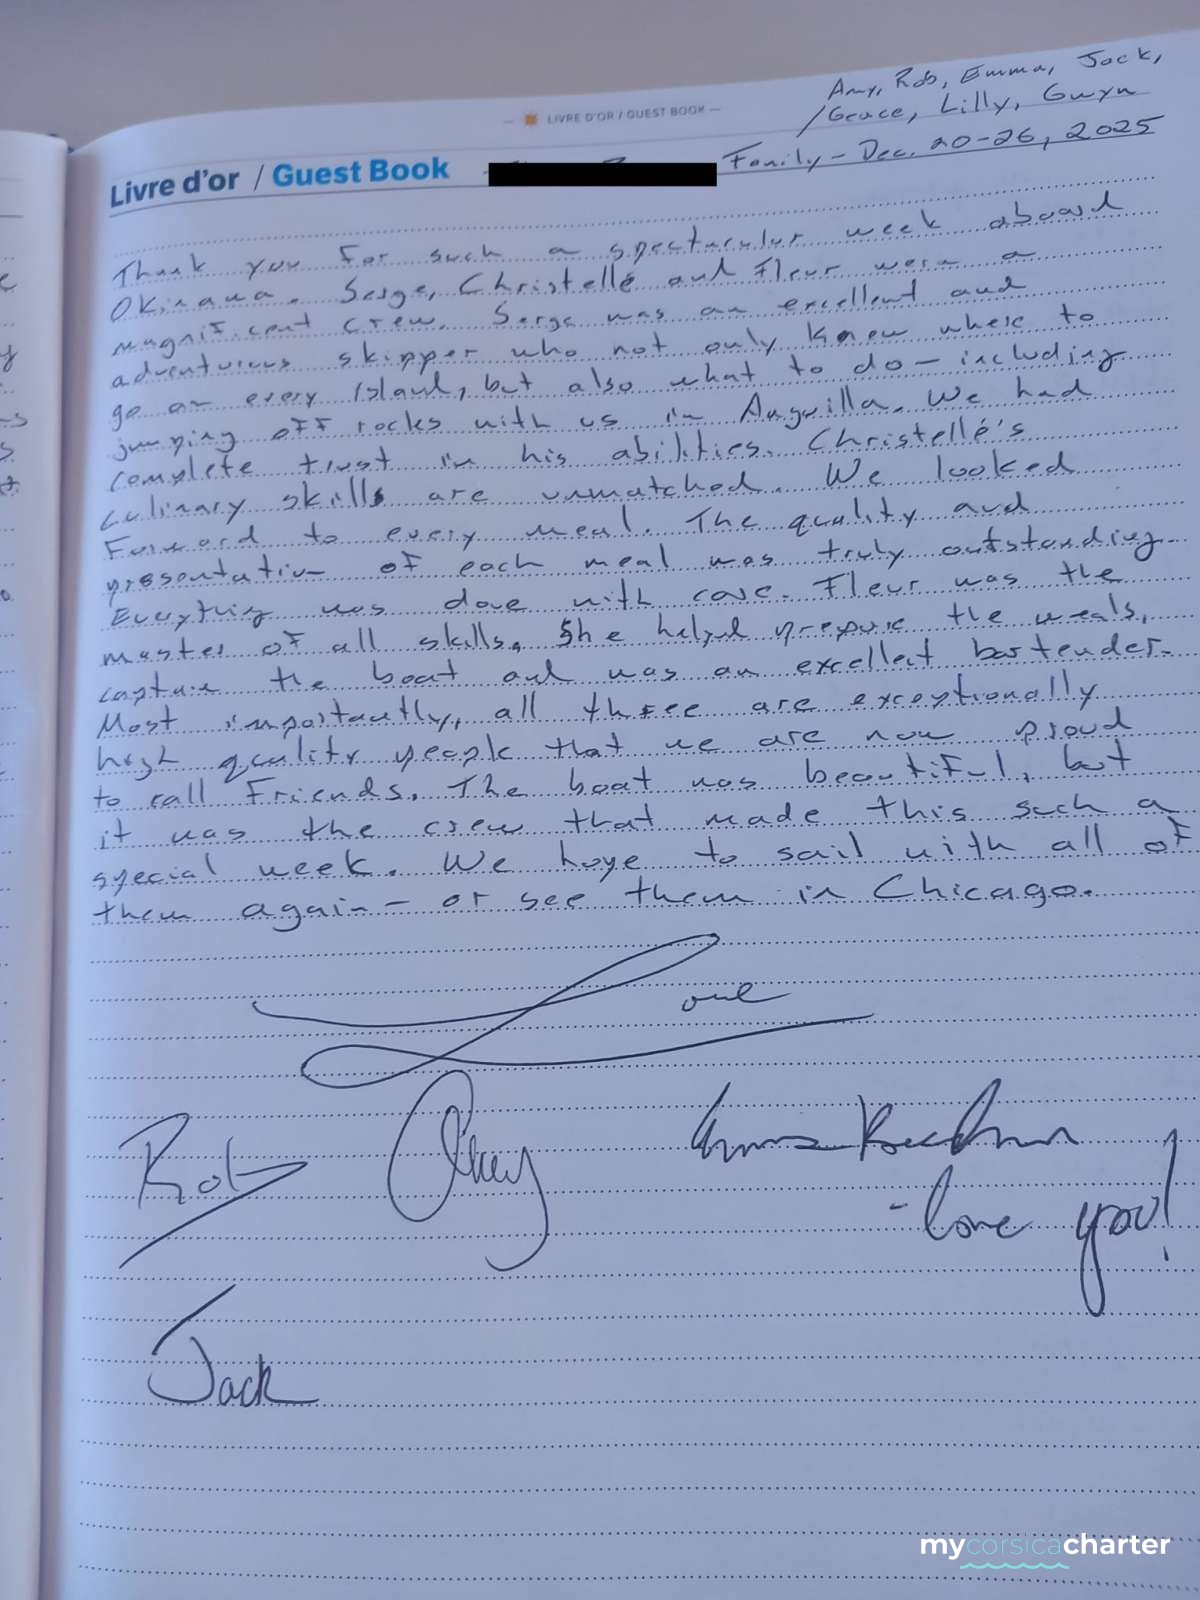 Amy, Rob, Emma, Jack,
/Grace, Lilly, Gwyn
LIVRE D'OR / GUEST BOOK
Livre d'or / Guest Book Family – Dec. 20-26, 2025
Thank you for such a spectacular week aboard
Okinawa. Serge, Christellé and Fleur were a
magnificent crew. Serge was an excellent and
adventurous skipper who not only knew where to
go on every island, but also what to do – including
jumping off rocks with us in Anguilla. We had
complete trust in his abilities. Christellé's
culinary skills are unmatched. We looked
forward to every meal. The quality and
presentation of each meal was truly outstanding.
Everything was done with care. Fleur was the
master of all skills. She helped prepare the meals,
captain the boat and was an excellent bartender.
Most importantly, all three are exceptionally
high quality people that we are now proud
to call friends. The boat was beautiful, but
it was the crew that made this such a
special week. We hope to sail with all of
them again – or see them in Chicago.
Love
Rob Amy Emma
- love you!
Jack
mycorsicacharter